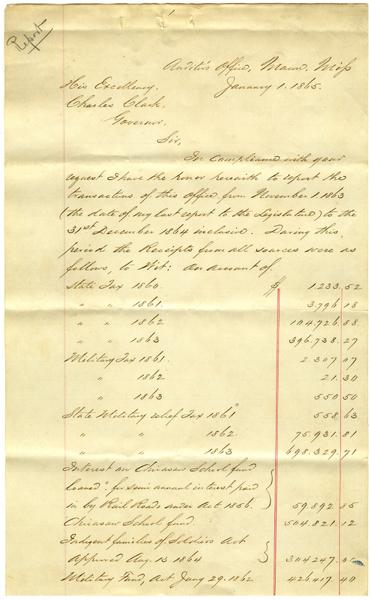 Report
Auditor's Office, Macon, Miss
January 1. 1865.
His Excellency.
Charles Clark.
Governor.
Sir,
In compliance with your
request I have the honor herewith to report the
transactions of this Office from November 1 1863
(the date of my last report to the Legislature) to the
31st December 1864 inclusive. During this
period the Receipts from all sources were as
follows, to Wit: On account of.
State Tax 1860. $ 1.233.52
" " 1861. 3.796.18
" " 1862 104.726.88
" " 1863 396.738.27
Military Tax 1861. 2.307.07
" 1862 21.30
" 1863 550.50
State Military relief Tax 1861 558.63
" " 1862 75.931.81
" " 1863 698.329.71
Interest on Chicasaw School fund
loaned". for semi annual interest paid
in by Rail Roads under Act 1856. 59.892.85
Chicasaw School fund. 504.821.12
Indigent families of Soldiers Act
Approved Aug. 13 1864 304.247.
Military Fund, Act Jany 29. 1862. 426.417.40